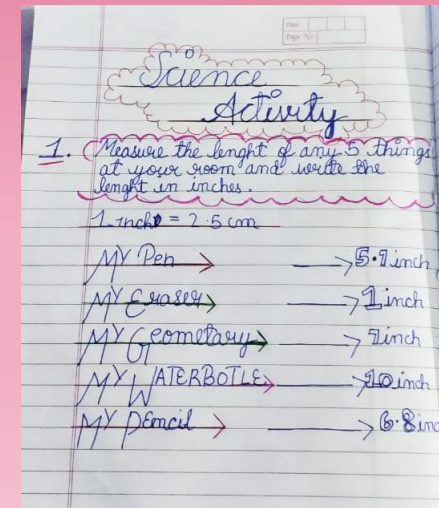 Date
Page No.
Science
Activity
1. Measure the lenght of any 5 things
at your room and write the
lenght in inches.
1 inch = 2.5 cm
MY Pen → → 5.1 inch
MY Eraser → → 1 inch
MY Geometary → → 7 inch
MY WATERBOTLE → → 10 inch
MY PEncil → → 6.8 inc